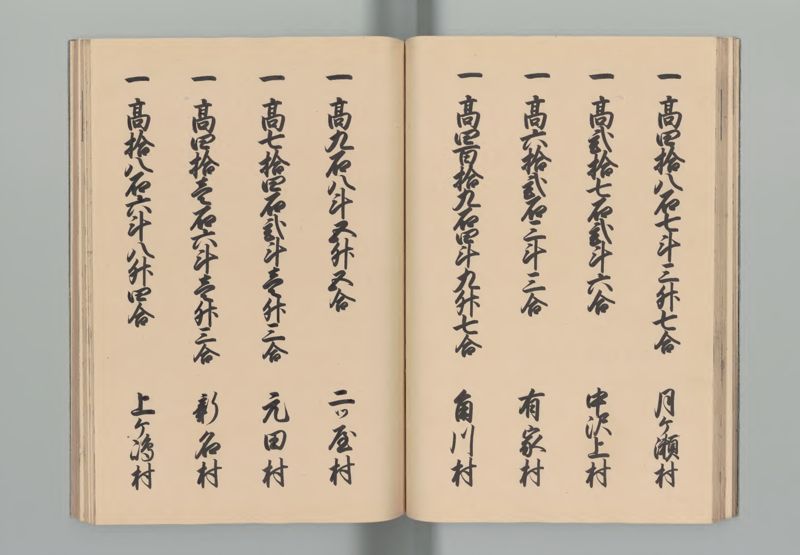 一 高四拾八石七斗三升七合 月ケ瀬村
一 高弐拾七石弐斗六合 中沢上村
一 高六拾弐石三斗三合 有家村
一 高四百拾九石四斗九升七合 角川村
一 高九石八斗五升五合 二ッ屋村
一 高七拾四石弐斗壱升三合 元田村
一 高四拾壱石六斗壱升三合 新名村
一 高拾八石六斗八升四合 上ケ嶋村